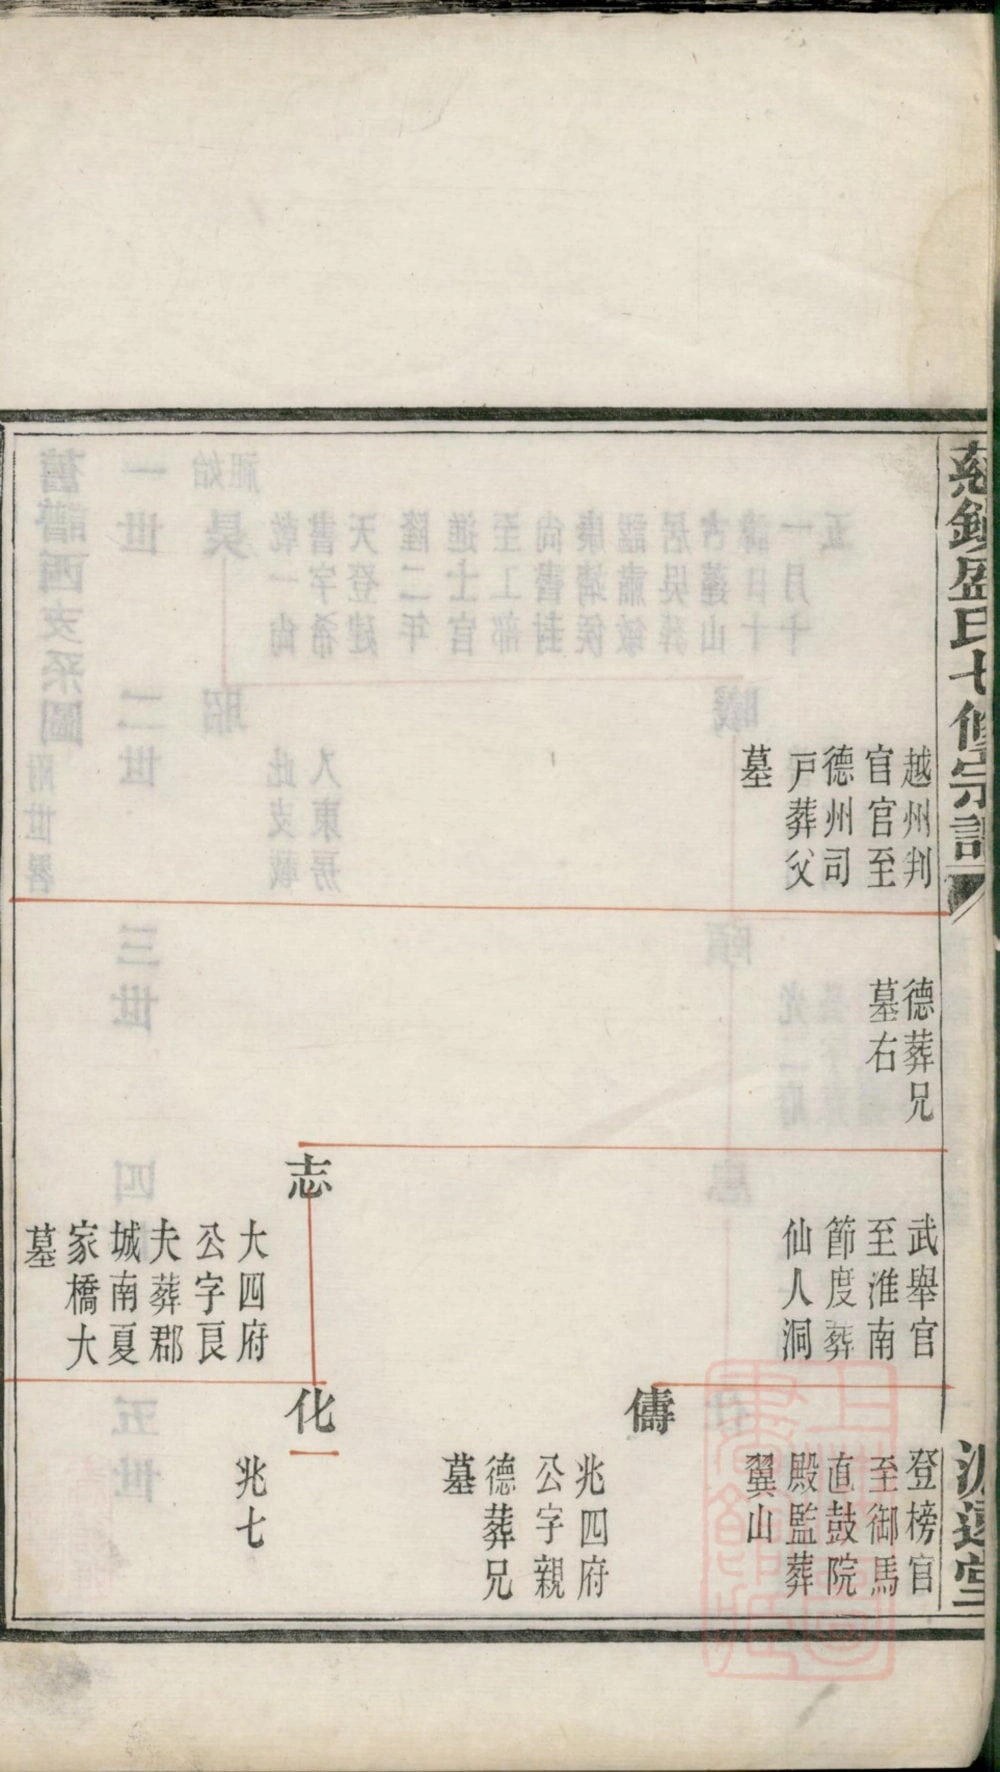 慈鎮盛氏七修宗譜
越州判
官官至
德州司
戸葬父
墓
德葬兄
墓右
武舉官
至淮南
節度葬
仙人洞
志
大四府
公字良
夫葬郡
城南夏
家橋大
墓
登榜官
至御馬
直鼓院
殿監葬
翼山
儔
兆四府
公字親
德葬兄
墓
化
兆七